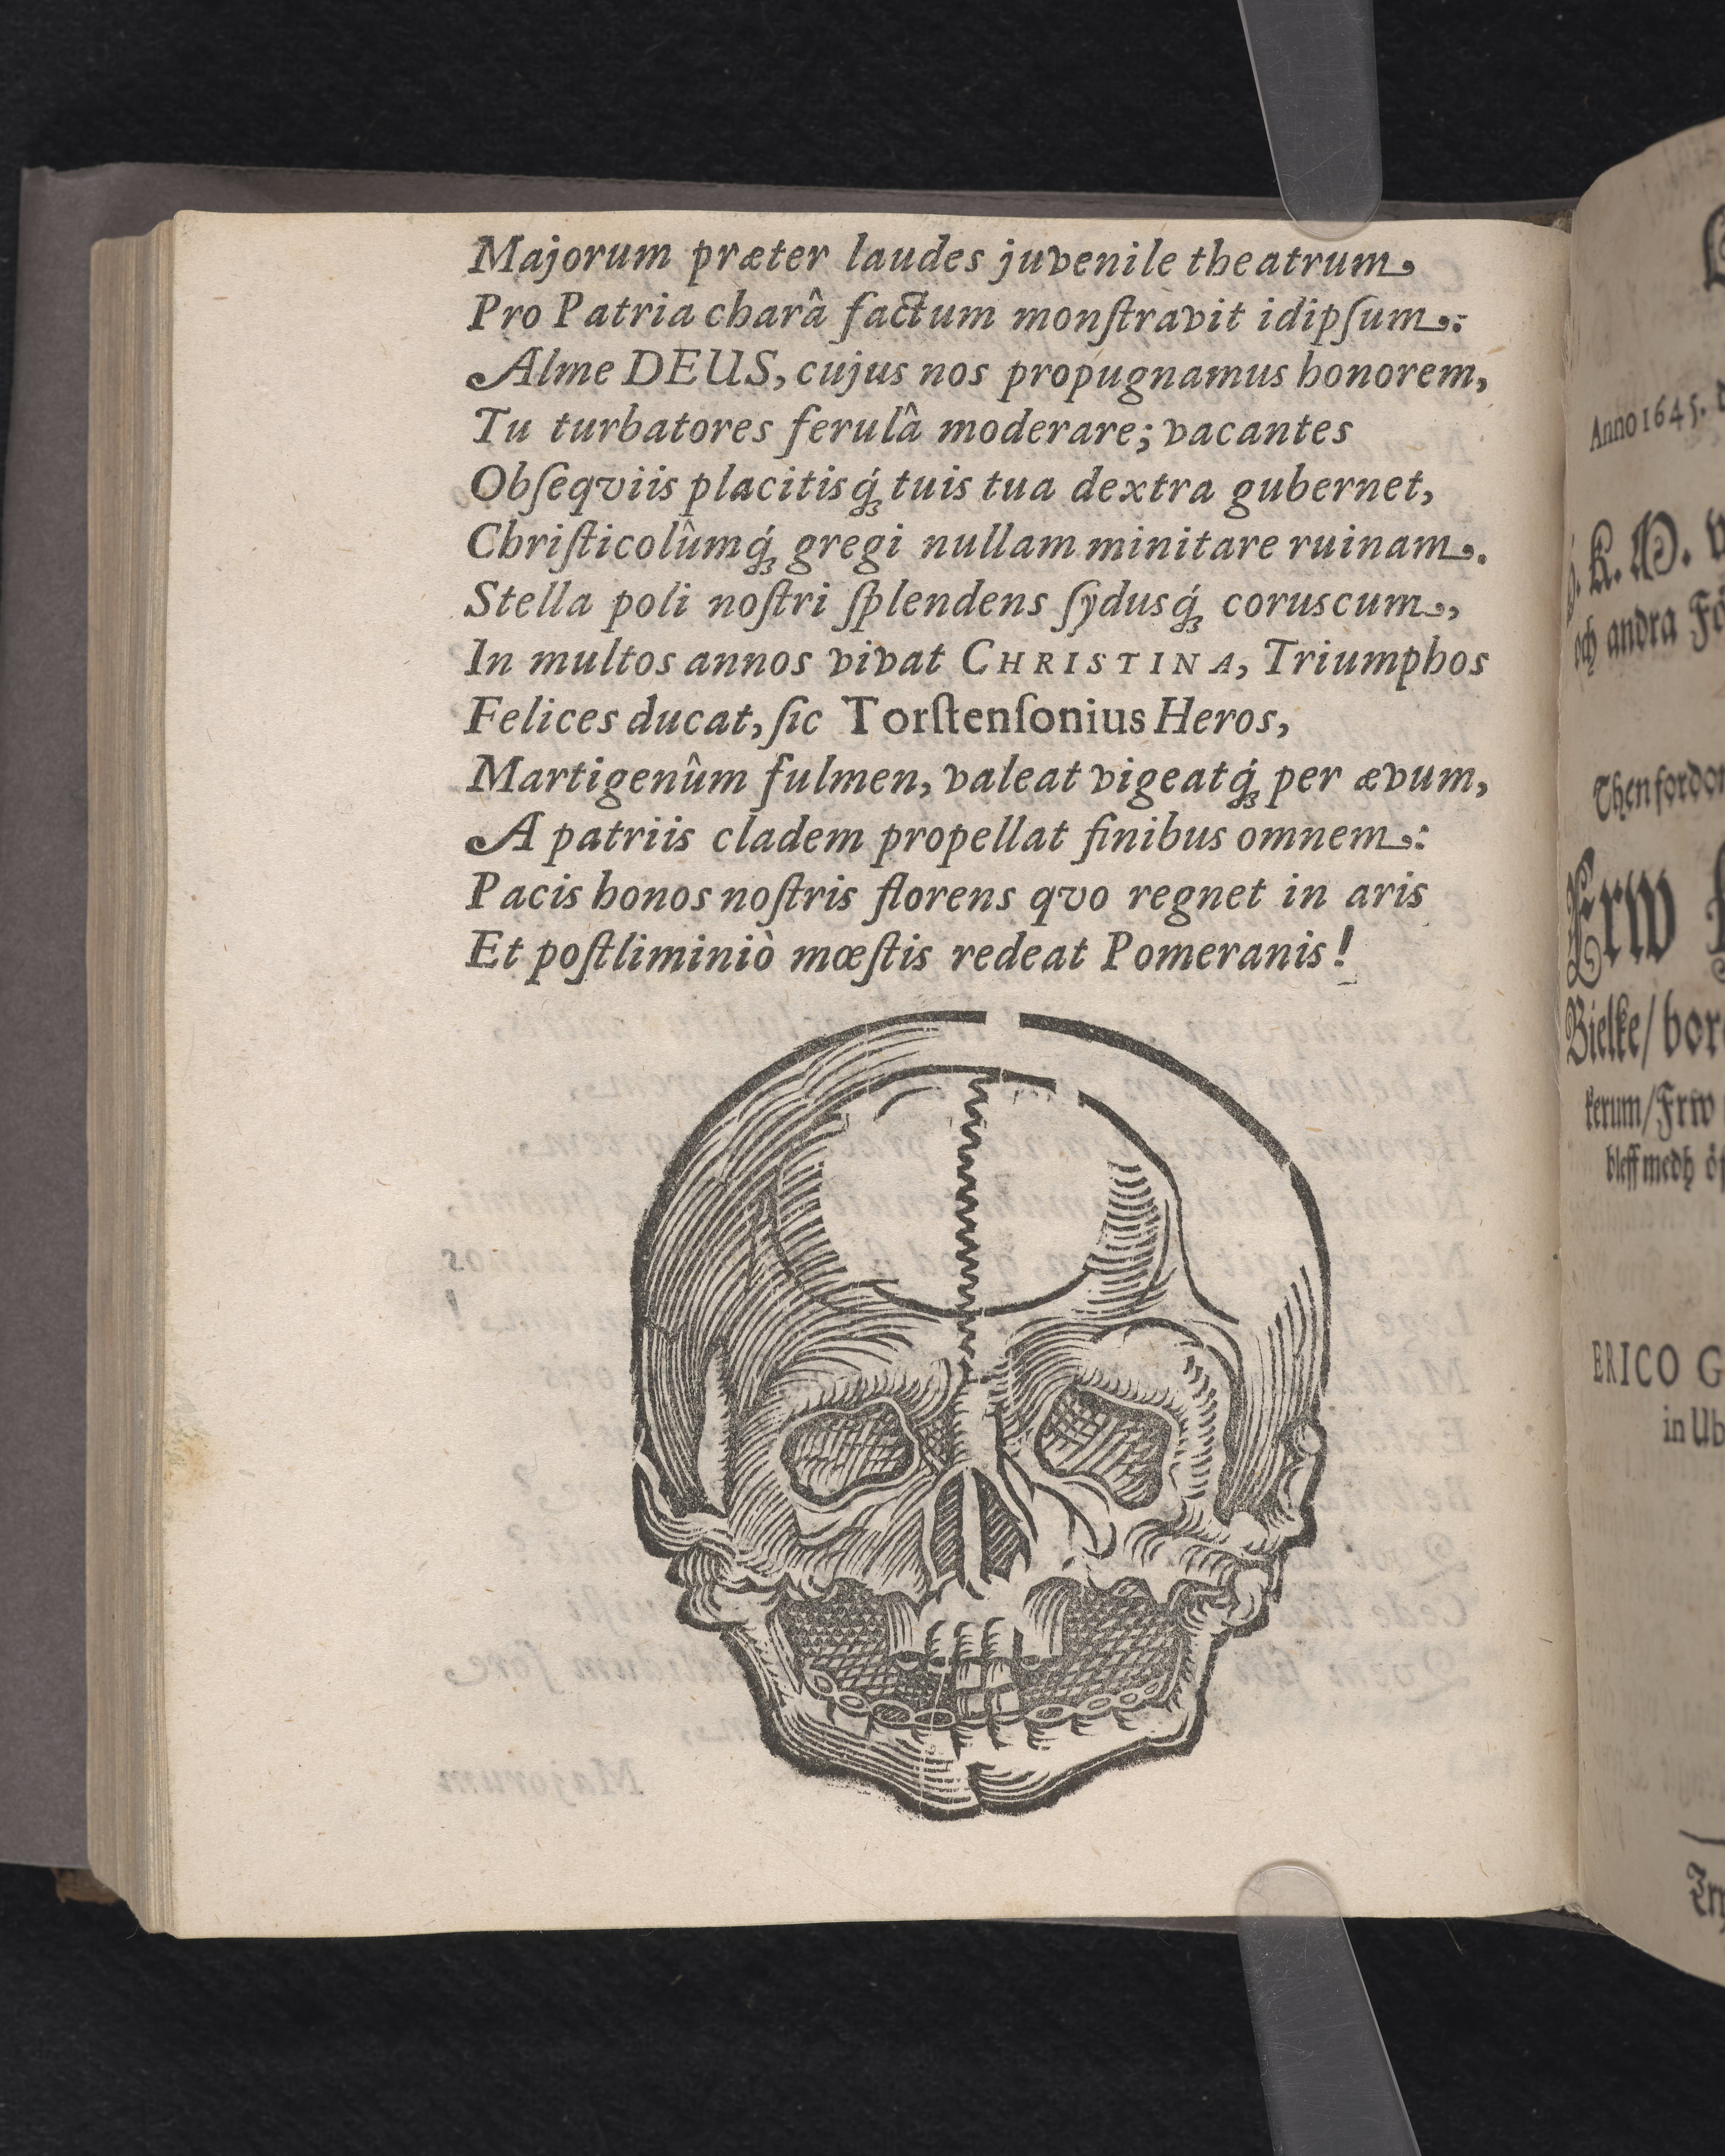 Majorum præter laudes juvenile theatrum,
Pro Patria charâ factum monſtravit idipſum:
Alme DEUS, cujus nos propugnamus honorem,
Tu turbatores ferulâ moderare; vacantes
Obſeqviis placitisq́ꝫ tuis tua dextra gubernet,
Chriſticolûmq́ꝫ gregi nullam minitare ruinam.
Stella poli noſtri ſplendens ſydusq́ꝫ coruscum,
In multos annos vivat CHRISTINA, Triumphos
Felices ducat, ſic Torſtenſonius Heros,
Martigenûm fulmen, valeat vigeatq́ꝫ per ævum,
A patriis cladem propellat finibus omnem:
Pacis honos noſtris florens qvo regnet in aris
Et poſtliminiò mœſtis redeat Pomeranis!
Anno 1645.
K. M.
och andra
Frw
Bielke/
kerum/Frw
bleff medh
ERICO G
in Ub